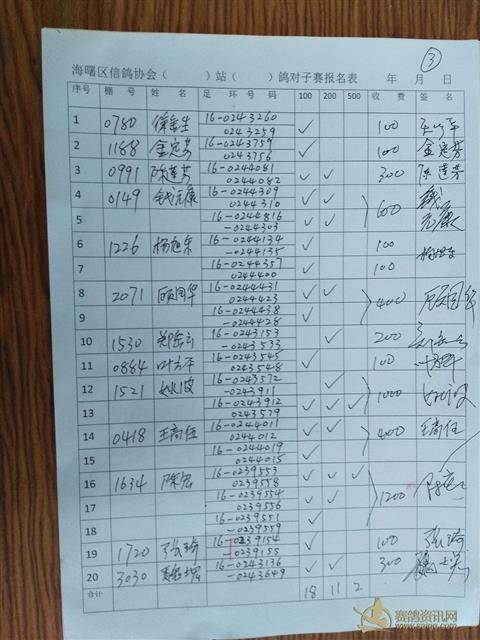 ③
海曙区信鸽协会（ ）站（ ）鸽对子赛报名表 年 月 日
序号 棚 号 姓 名 足 环 号 码 100 200 500 收 费 签 名
1 0780 徐金生 16-0243260 ✓ 100
0243259
2 1188 金定芬 16-0243759 ✓ 100 金定芬
0243756
3 0991 陈莲芬 16-0244081 ✓ ✓ 300 陈莲芬
0244082
4 0149 钱元康 16-0244309 ✓ ✓ 600 钱元康
0244310
5 16-0244816 ✓ ✓
-0244303
6 1226 杨旭东 16-0244134 ✓ 100 杨旭东
-0244135
7 16-0244357 ✓ 100
0244400
8 2071 顾国华 16-0244431 ✓ ✓ 400 顾国华
0244423
9 16-0244438 ✓
-0244428
10 1530 16-0243153 ✓ 200
-0243533
11 0884 叶方平 16-0243545 ✓ 100
0243548
12 1521 16-0243572 ✓ 1000
-0243911
13 16-0243912 ✓ ✓ ✓
0243579
14 0418 王高任 16-0244011 ✓ ✓ 400 王高任
0244012
15 16-0244019 ✓
0244015
16 1634 陈宏 16-0239553 ✓ ✓ ✓ 1200
0239558
17 16-0239554 ✓ ✓
0239556
18 16-0239551 ✓
-0239559
19 1720 张琦 16-0239154 ✓ 100 张琦
0239155
20 3030 16-0243136 ✓ ✓ 300
-0243649
合计 18 11 2
赛鸽资讯网
www.saige.com